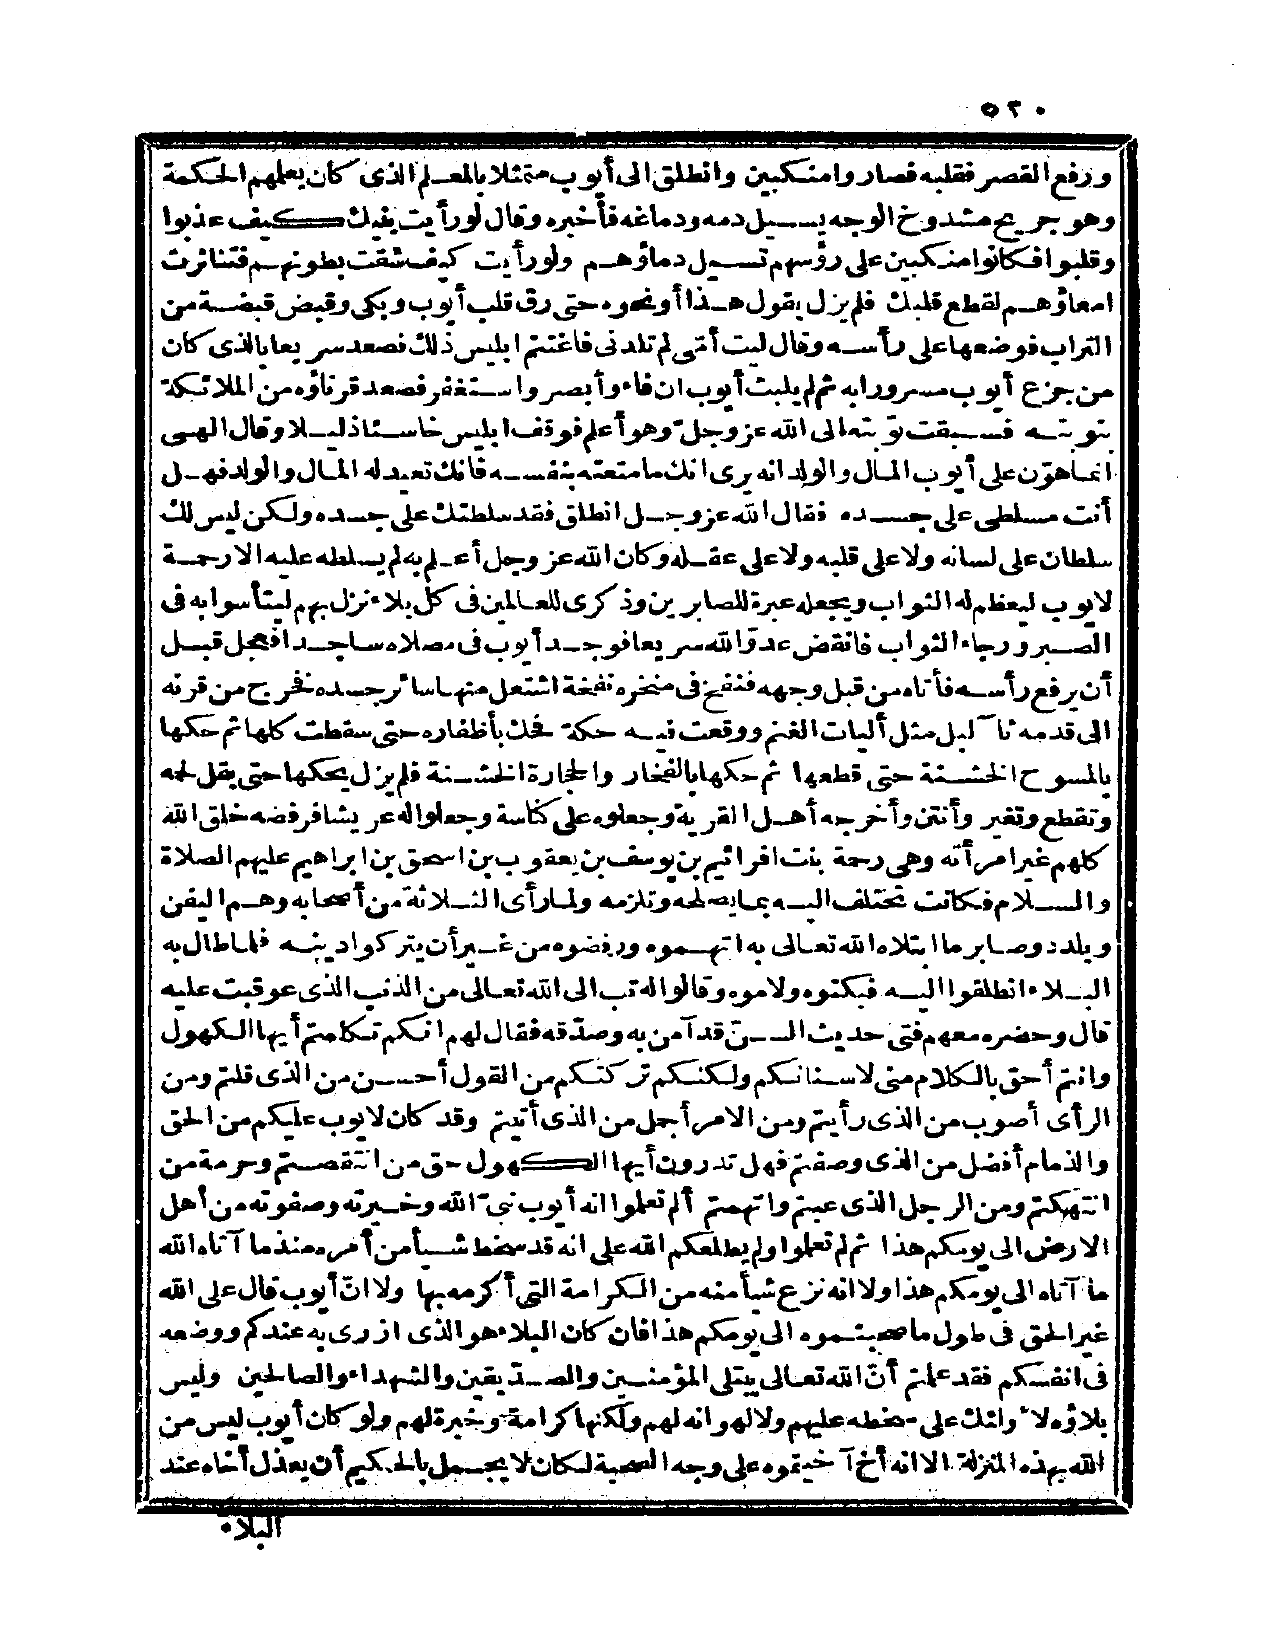 ٥٢٠
ورفع القصر فقلبه فصاروا منكبين وانطلق الى أيوب متمثلا بالمعلم الذى كان يعلمهم الحكمة
وهو جريح مشدوخ الوجه يسيل دمه ودماغه فأخبره وقال لو رأيت بنيك كيف عذبوا
وقلبوا فكانوا منكبين على رؤسهم تسيل دماؤهم ولو رأيت كيف شقت بطونهم فتناثرت
امعاؤهم لقطع قلبك فلم يزل يقول هذا أو نحوه حتى رق قلب أيوب وبكى وقبض قبضة من
التراب فوضعها على رأسه وقال ليت أمى لم تلدنى فاغتنم ابليس ذلك فصعد سريعا بالذى كان
من جزع أيوب مسرورا به ثم لم يلبث أيوب ان فاء وأبصر واستغفر فصعد قرناؤه من الملائكة
بتوبته فسبقت توبته الى الله عز وجل وهو أعلم فوقف ابليس خاسئا ذليلا وقال الهى
انما هوّن على أيوب المال والولد انه يرى انك ما متعته بنفسه فانك تعيد له المال والولد فهل
أنت مسلطى على جسده فقال الله عز وجل انطلق فقد سلطتك على جسده ولكن ليس لك
سلطان على لسانه ولا على قلبه ولا على عقله وكان الله عز وجل أعلم به لم يسلطه عليه الا رحمة
لايوب ليعظم له الثواب ويجعله عبرة للصابرين وذكرى للعالمين فى كل بلاء نزل بهم ليتأسوا به فى
الصبر ورجاء الثواب فانقض عدوّ الله سريعا فوجد أيوب فى مصلاه ساجدا فعجل قبل
أن يرفع رأسه فأتاه من قبل وجهه فنفخ فى منخره نفخة اشتعل منها سائر جسده فخرج من قرنه
الى قدمه ثآ ليل مثل أليات الغنم ووقعت فيه حكة فحك بأظفاره حتى سقطت كلها ثم حكها
بالمسوح الخشنة حتى قطعها ثم حكها بالفخار والحجارة الخشنة فلم يزل يحكها حتى بقل لحمه
وتقطع وتغير وأنتن وأخرجه أهل القرية وجعلوه على كناسة وجعلوا له عريشا فرفضه خلق الله
كلهم غير امرأته وهى رحمة بنت افرائيم بن يوسف بن يعقوب بن اسحق بن ابراهيم عليهم الصلاة
والسلام فكانت تختلف اليه بما يصلحه وتلزمه ولما رأى الثلاثة من أصحابه وهم اليفن
ويلدد وصابر ما ابتلاه الله تعالى به اتهموه ورفضوه من غير أن يتركوا دينه فلما طال به
البلاء انطلقوا اليه فبكتوه ولاموه وقالوا له تب الى الله تعالى من الذنب الذى عوقبت عليه
قال وحضره معهم فتى حديث السنّ قد آمن به وصدّقه فقال لهم انكم تكلمتم أيها الكهول
وانتم أحق بالكلام منى لاسنانكم ولكنكم تركتكم من القول أحسن من الذى قلتم ومن
الرأى أصوب من الذى رأيتم ومن الامر أجمل من الذى أتيتم وقد كان لايوب عليكم من الحق
والذمام أفضل من الذى وصفتم فهل تدرون أيها الكهول حق من انتقصتم وحرمة من
انتهكتم ومن الرجل الذى عبتم واتهمتم ألم تعلموا انه أيوب نبىّ الله وخيرته وصفوته من أهل
الارض الى يومكم هذا ثم لم تعلموا ولم يطلعكم الله على انه قد سخط شيأ من أمره منذ ما آتاه الله
ما آتاه الى يومكم هذا ولا انه نزع شيأ منه من الكرامة التى أكرمه بها ولا انّ أيوب قال على الله
غير الحق فى طول ما صحبتموه الى يومكم هذا فان كان البلاء هو الذى ازرى به عندكم ووضعه
فى انفسكم فقد علمتم أنّ الله تعالى يبتلى المؤمنين والصديقين والشهداء والصالحين وليس
بلاؤه لاولئك على سخطه عليهم ولا لهوانه لهم ولكنها كرامة وخيرة لهم ولو كان أيوب ليس من
الله بهذه المنزلة الا انه أخ آخيتموه على وجه الصحبة لكان لا يجمل بالحكيم أن يعذل أخاه عند
البلاء